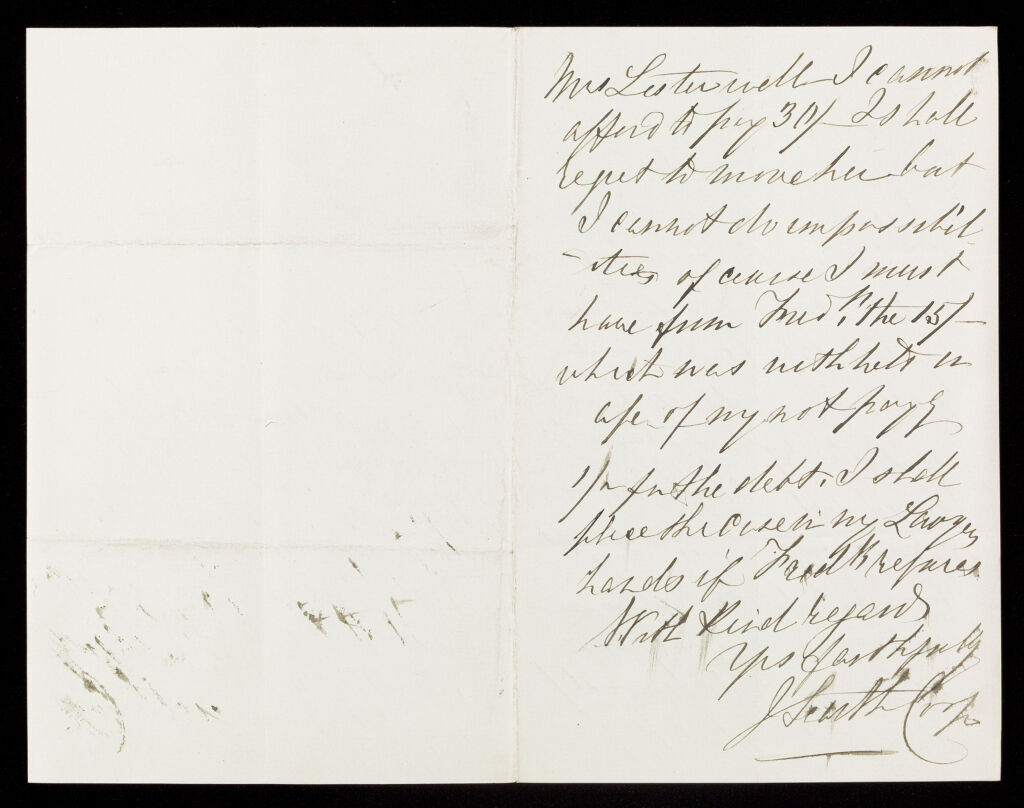 Mrs Lester well I cannot
afford to pay 30/- I shall
regret to move her but
I cannot do impossibil
-ities of course I must
have from Fredk. the 15/-
which was withheld in
of my not payg
for the debt. I shall
place the case in my Lawyers
hands if Fredk refuses
With kind regards
Yrs faithfully
J